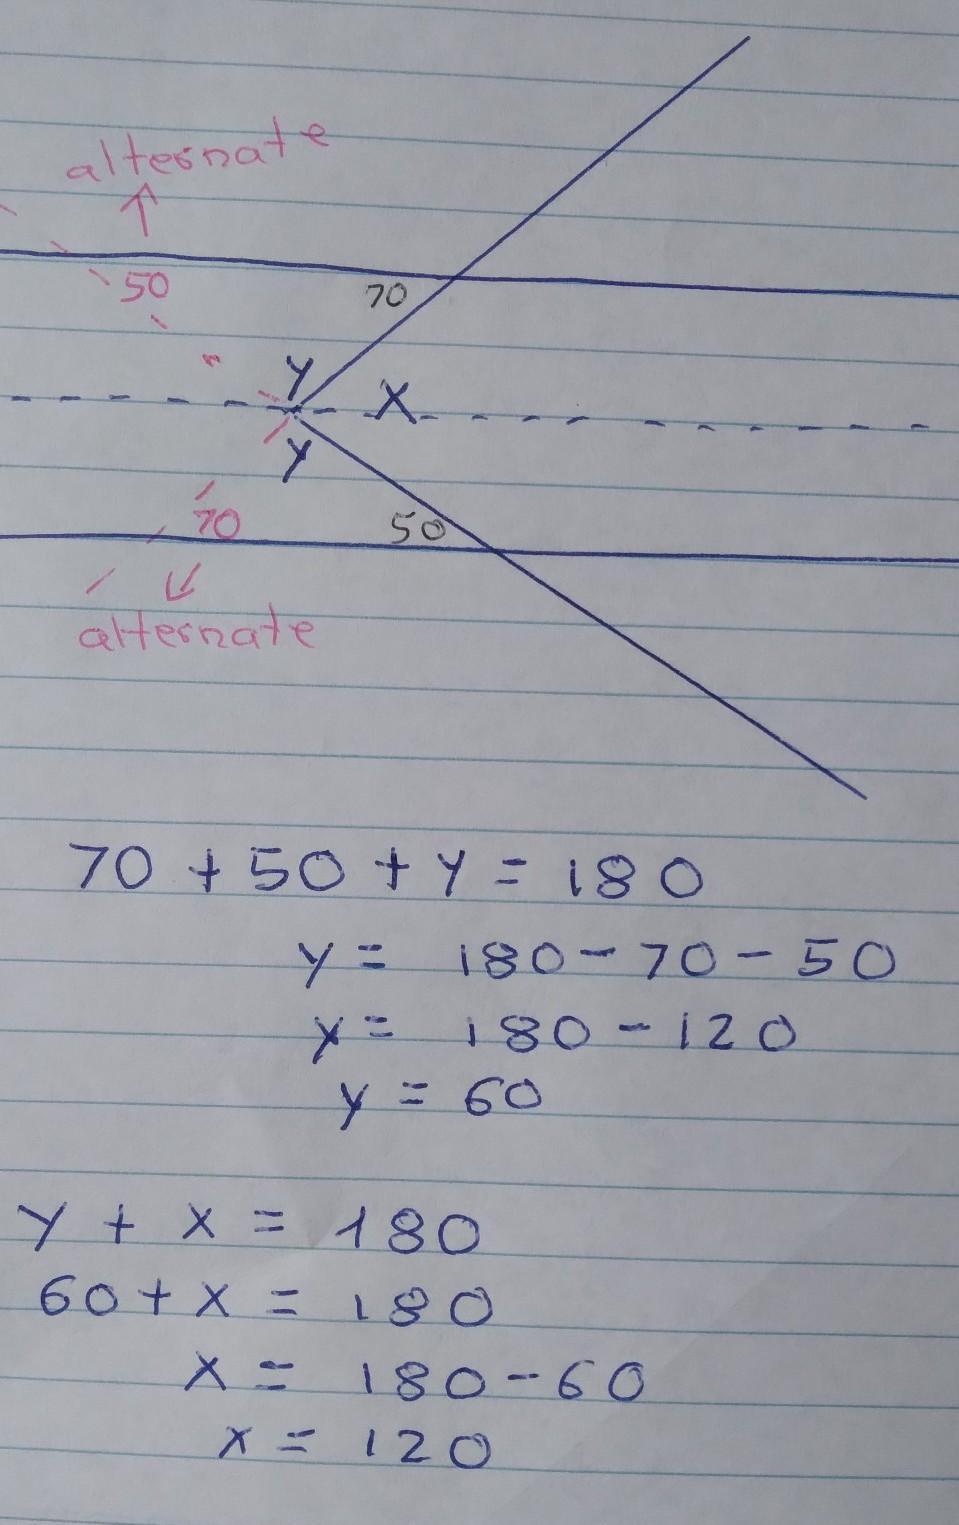 alternate
50
70
Y
X
Y
70
50
alternate
70 + 50 + Y = 180
Y = 180 - 70 - 50
Y = 180 - 120
Y = 60
Y + X = 180
60 + X = 180
X = 180 - 60
X = 120